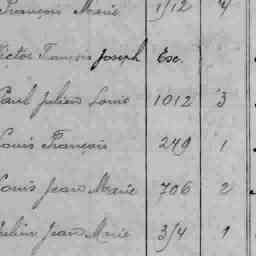 François Marie 1/12 4
Victor François Joseph Exc.
Paul Julien Louis 1012 3
Louis François 249 1
Louis Jean Marie 706 2
Julien Jean Marie 314 1